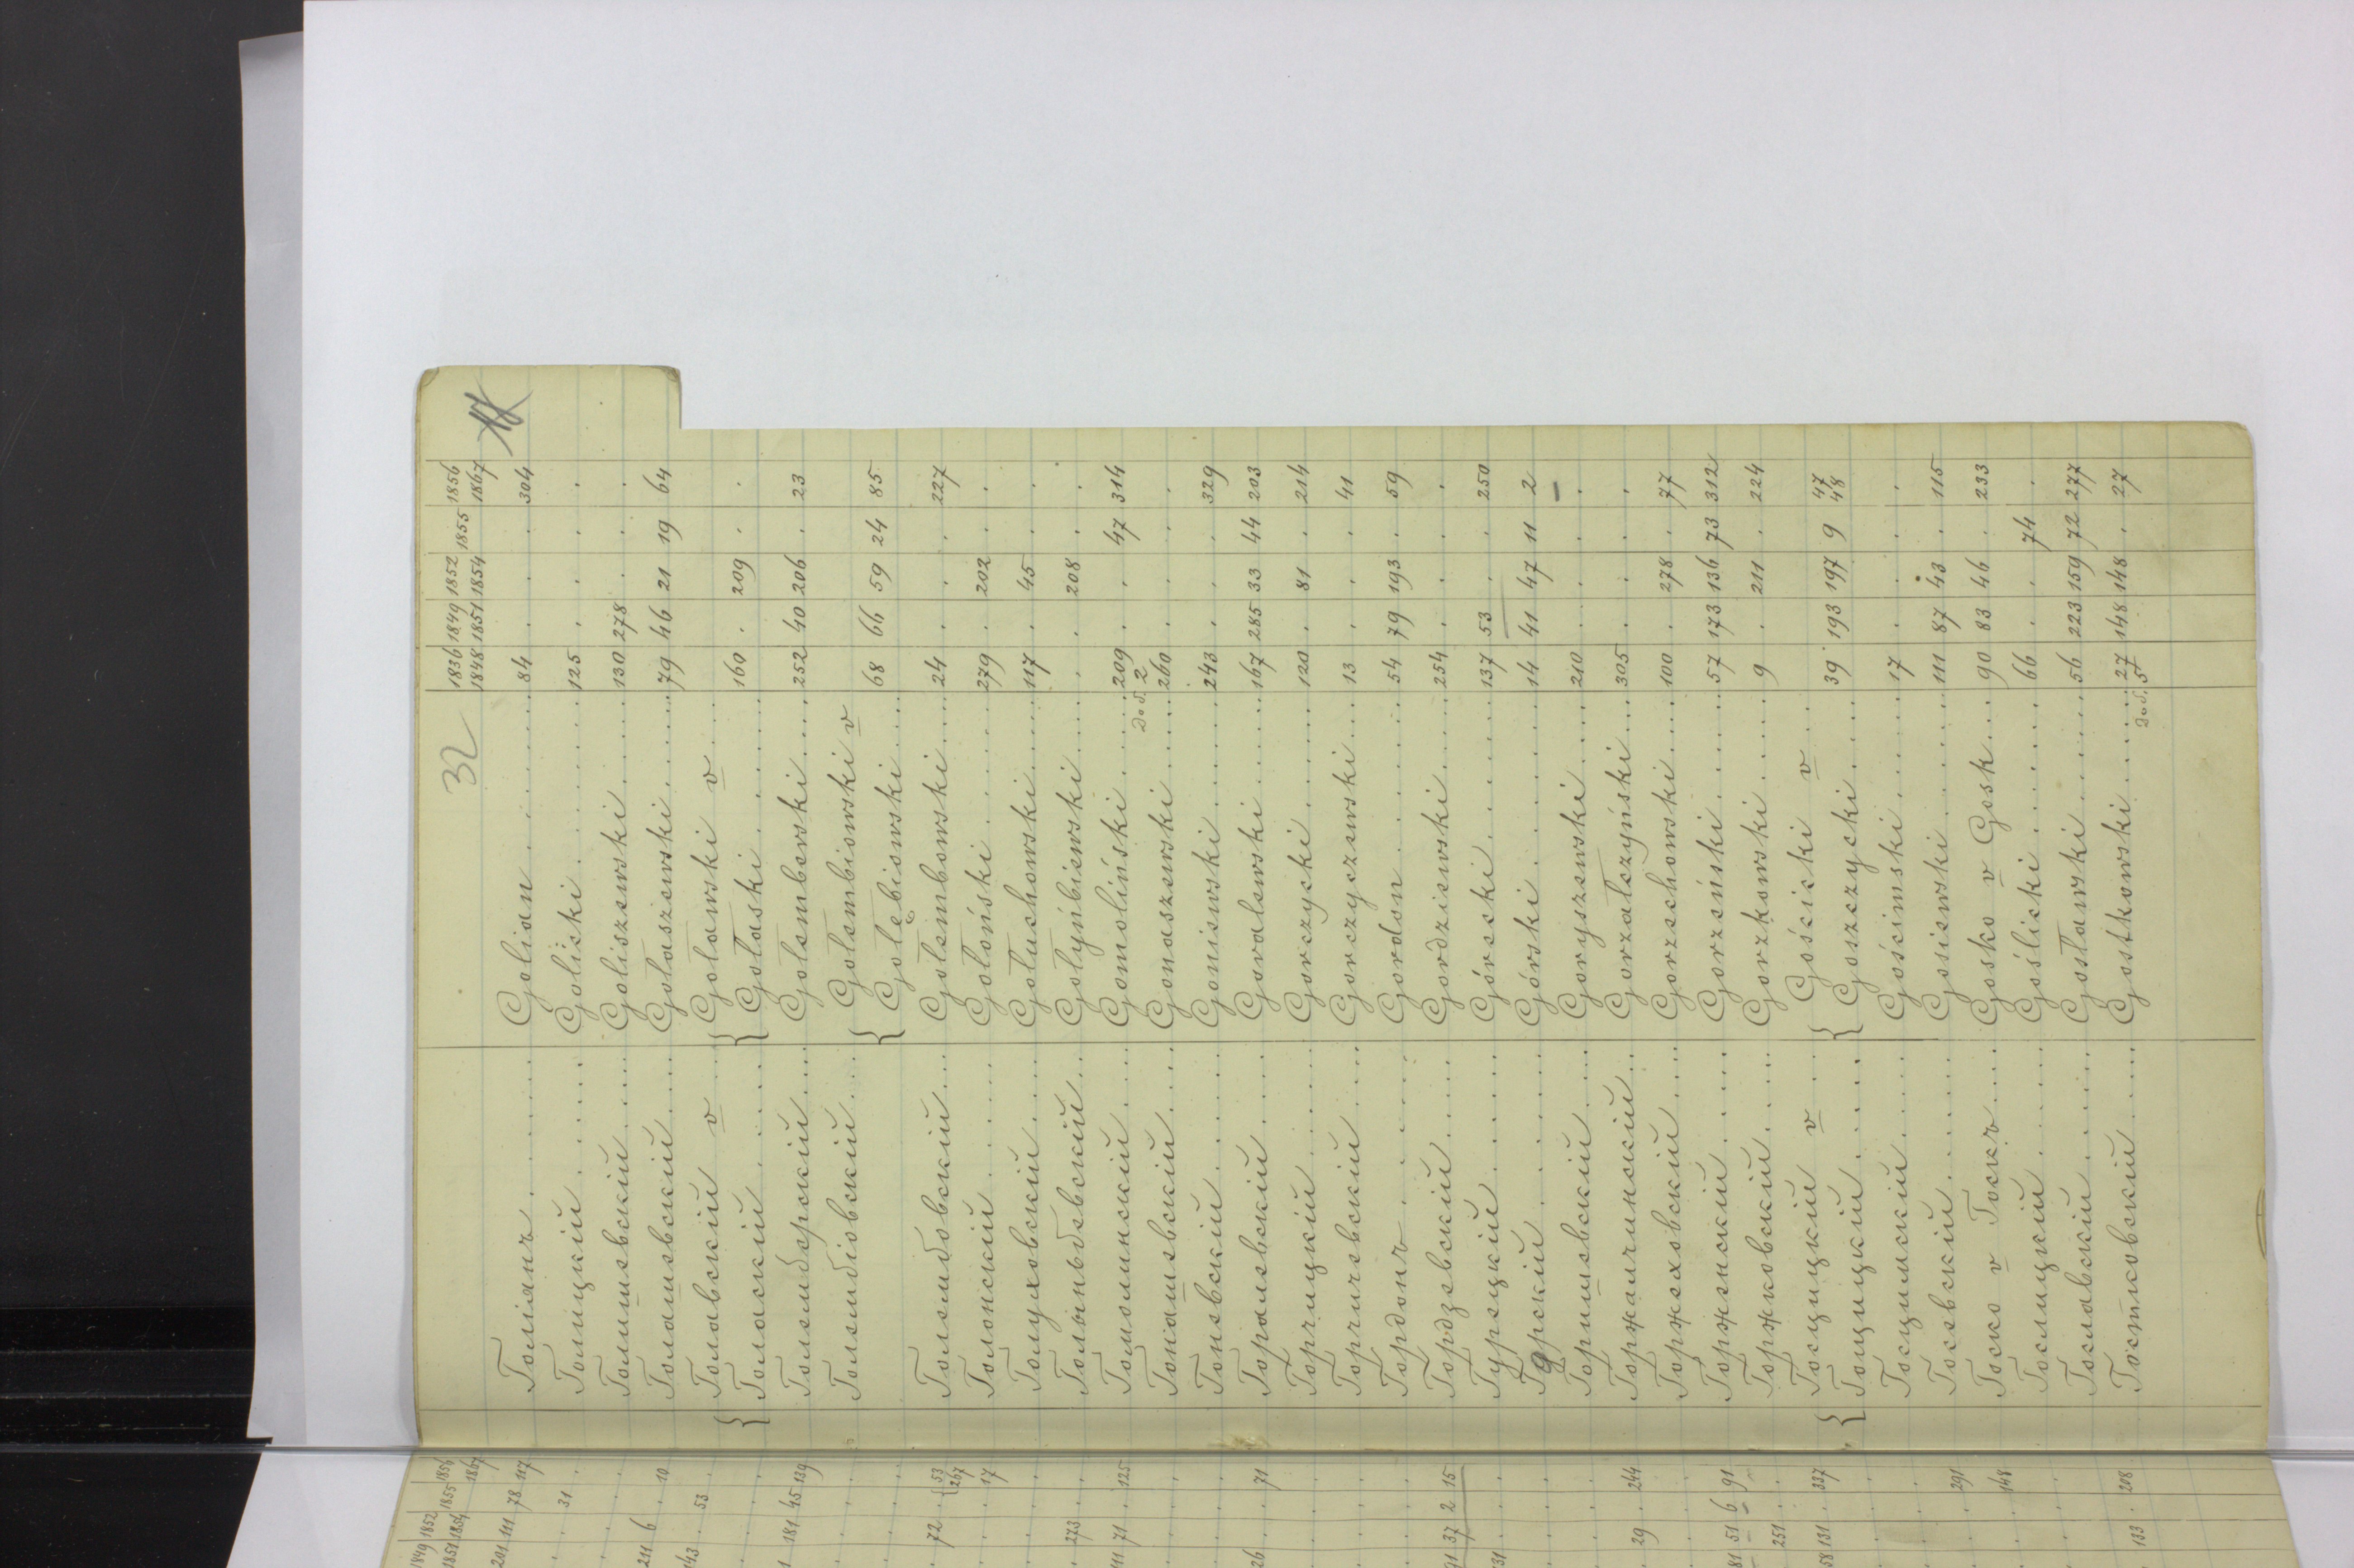 32
1836 1848 1849 1851 1852 1854 1855 1856 1867
Голіанъ Golian 84 . . . 304
Голицкій Golicki 125 . . . .
Голишевскій Goliszewski 130 278 . . .
Голашевскій Gołaszewski 79 46 21 19 64
Голавскій v Goławski v
Голаскій Gołaski 160 . 209 . .
Големберскій Golemberski 252 40 206 . 23
Голембіовскій Gołembiowski v
Gołębiowski 68 66 59 24 85
Голембовскій Gołembowski 24 . . . 227
Голонскій Gołoński 279 . 202 . .
Голуховскій Gołuchowski 117 . 45 . .
Голыньбевскій Gołyńbiewski . . 208 . .
Гомолинскій Gomoliński 209 . . 47 314
доб. 2
Гонашевскій Gonaszewski 260 . . . .
Гоневскій Goniewski 243 . . . 329
Горалевскій Goralewski 167 285 33 44 203
Горчицкій Gorczycki 120 . 81 . 214
Горчичевскій Gorczyczewski 13 . . . 41
Гордонъ Gordon 54 79 193 . 59
Гордзевскій Gordziewski 254 . . . .
Гурецкій Górecki 137 53 . . 250
Гурскій Górski 14 41 47 11 2
Горишевскій Goryszewski 210 . . . .
Горжалчинскій Gorzałczyński 305 . . . .
Горжеховскій Gorzechowski 100 . 278 . 77
Горженскій Gorzeński 57 173 136 73 312
Горжковскій Gorzkowski 9 . 211 . 224
Госцицкій v Gościcki v
Гощицкій Goszczycki 39 193 197 9 47 48
Госцимскій Gościmski 17 . . . .
Госевскій Gosiewski 111 87 43 . 115
Госко v Госкъ Gosko v Gosk 90 83 46 . 233
Гослицкій Goślicki 66 . . 74 .
Гославскій Gosławski 56 223 159 72 277
Гостковскій Gostkowski 27 148 148 . 27
доб. 5
1849 1851 1852 1854 1855 1856 1867
201 111 78 117
. . 31 .
211 6 . 10
143 . 53 .
1 181 45 139
. 72 . 53 267
. . . 17
. 273 . .
111 71 . 125
26 . . 71
91 37 2 15
31 . . .
. 29 . 244
81 51 6 91
. 251 . .
58 131 . 337
. . . 291
. . . 148
. 133 . 208